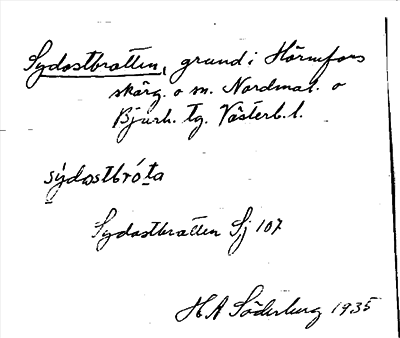 Sydostbrotten, grund i Hörnefors
skärg. o m. Nordmal. o
Bjurh. tg. Västerb. l.
sýdɷstbró̱ta
Sydostbrotten Sj 107
H A Söderberg 1935